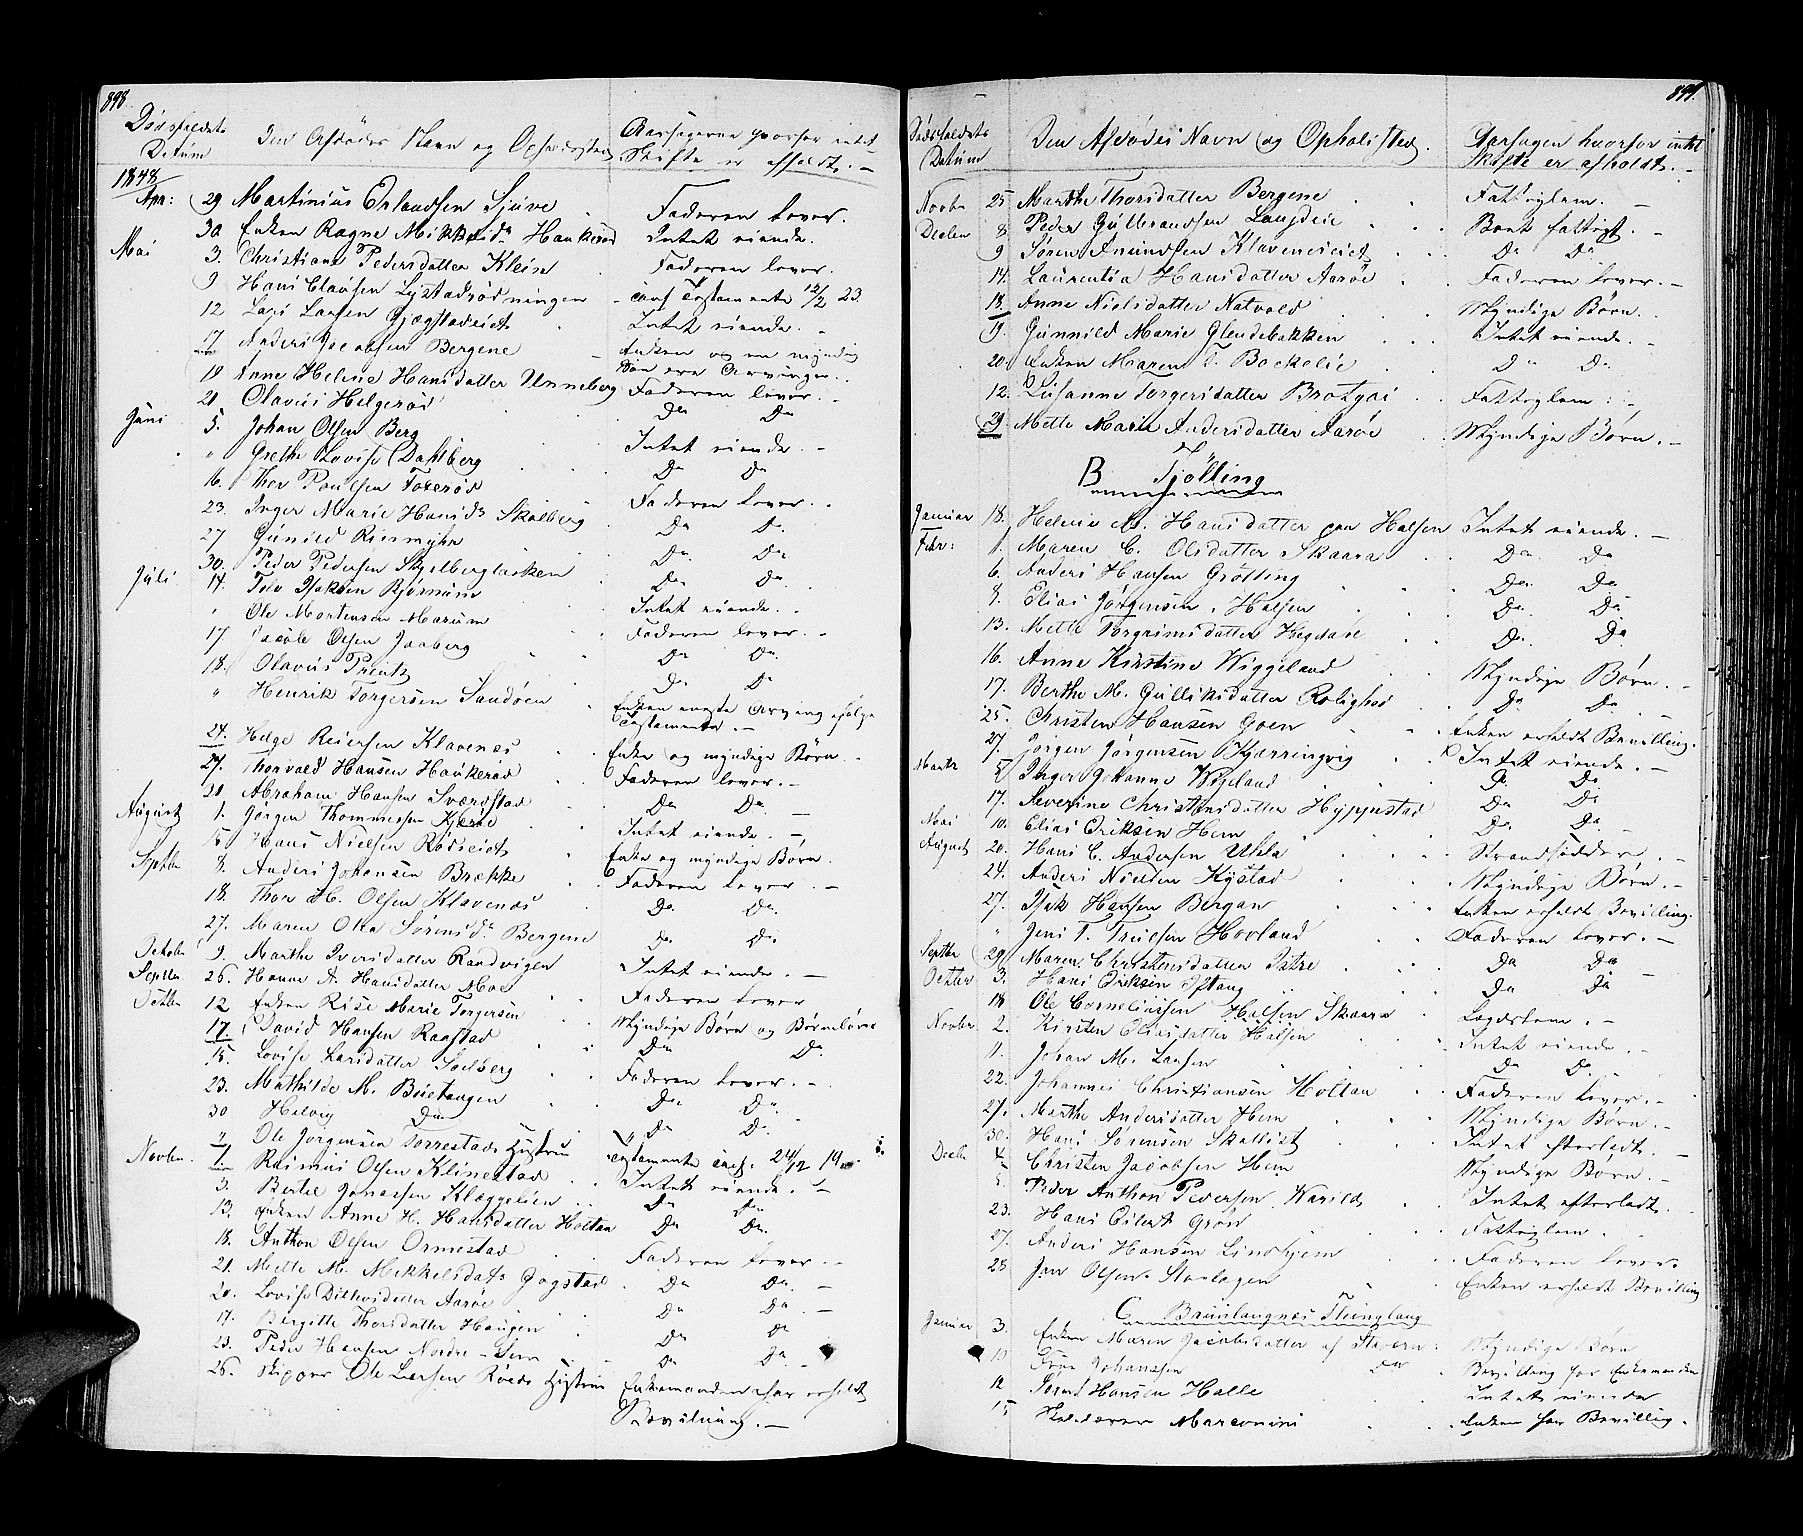 898.
Dødsfaldets Datum
Den Afdødes Navn og Opholdssted
Aarsagerne hvorfor intet Skifte er afholdt. -
1848
Apr: 29 Martinius Erlandsen Sjuve . Faderen lever.
30 Enken Ragne Mikkelsdr Haukerød Intet eiende.
Mai 3. Christiane Pedersdatter Klein . Faderen lever.
9 Hans Clausen Lystadrødningen - conf Testamente 12/2 23.
12 Lars Larsen Gjøgstadeiet . Intet eiende. -
17 Anders Jacobsen Bergene - Enken og en myndig
Søn ere Arvinger.
19 Anne Helene Hansdatter Unneberg Faderen lever. -
21 Olavus Helgerød Do Do
Juni 5. Johan Olsen Berg Intet eiende. -
" Grethe Lovise Dahlberg Do Do
16. Thor Poulsen Toxerød Faderen lever. -
23. Inger Marie Hansdr Skalberg Do D.
27 Gunild Riismyhr Do Do
30. Peder Pedersen Skjelbergløkken Do Do
Juli 14. Tolv Isaksen Bjørnum Intet eiende. -
" Ole Mortensen Marum Faderen lever. -
17 Jacob Olsen Jaaberg Do Do.
18. Olavus Preutz Do Do
" Henrik Torgersen Sandøen Enken eneste Arving ifølge
Testamente. -
24. Helge Reiersen Klavenes Enke og myndige Børn.
27. Thorvald Hansen Haukerød Faderen lever. -
20 Abraham Hansen Sverdstad Do Do.
August 1. Jørgen Thommesen Kjerbo Intet eiende. -
15 Hans Nielsen Rødseiet Enke og myndige Børn.
Septbr 8. Anders Johansen Brække Faderen lever. -
18. Thor H. Olsen Klavenes Do. Do.
27. Maren Oka Sørensdr Bergene Do Do.
October 9. Marthe Iversdatter Randvigen Intet eiende. -
Septbr 26. Hanne A. Hansdatter Moe Faderen lever
Octbr 12 Enken Rise Marie Torgersen Myndige Børn og Børnebørn
17. David Hansen Raastad Do Do.
15. Lovise Larsdatter Solberg Faderen lever. -
23. Mathilde M. Buetangen Do Do.
30 Helvig Do Do Do.
" Ole Jørgensen Torrestads Hustru Testamente conf. 24/12 19
Novbr. 1 Rasmus Olsen Klinestad Intet eiende. -
3. Bertel Jonassen Klæggelien Do Do
13. Enken Anne H. Hansdatter Holtan Do Do.
18. Anthon Olsen Ormestad Faderen lever. -
21. Mette M. Mekkelsdatr Gogstad Do Do. -
20. Lovise Ditlevsdatter Aarøe Do Do. -
19. Birgitte Thorsdatter Haugen Do Do
23. Peder Hansen Nordre-Sem Do Do -
26. Skipper Ole Larsen Røeds Hustru Enkemanden har erholdt
Bevilning. -
899.
Dødsfaldets Datum
Den Afdødes Navn og Opholdssted.
Aarsagen hvorfor intet Skifte er afholdt. -
Novbr 25 Marthe Thorsdatter Bergene . . Fattiglem. -
Decbr 8. Peder Gulbrandsen Laugdeie . . Boet fattigt. -
9 Søren Amundsen Klaveneseiet . . Do Do
14. Laurentia Hansdatter Aarøe . . Faderen lever. -
18 Anne Nielsdatter Natvold . . Myndige Børn.
19. Gunnild Marie Glendebakken . . Intet eiende. -
20. Enken Maren T. Bockelie . D" Do
12. Susanne Torgersdatter Brotgai . Fattiglem. -
29 Mette Marie Andersdatter Aarøe . Myndige Børn. -
B Tjølling
Januar 18. Helene M. Hansdatter paa Halsen Intet eiende. -
Febr: 1. Maren C. Olsdatter Skaara . . Do Do
6. Anders Hansen Grøtting . . Do. Do
8. Elias Jørgensen, Halsen . . Do Do
13. Mette Torgrimsdatter Hegdale . . Do. Do
16. Anne Kirstine Wiggeland . . Myndige Børn. -
17. Berthe M. Gulliksdatter Rolighed . Do Do. -
25. Christen Hansen Goen . . Enken erholdt Bevilling.
27. Jørgen Jørgensen Kjærringvig . Intet eiende. -
Marts 5 Inger Johanne Wigeland . . D. Do
17. Severine Christensdatter Hyppestad Do Do
Mai 10. Elias Eriksen Hem . Do Do
August 20. Hans C. Andersen Ulla . . Strandsidder. -
24. Anders Nielsen Kystad . . Myndige Børn. -
27. Isak Hansen Bergan . . Enken erholdt Bevilling.
" Jens T. Truelsen Hovland . . Faderen lever. -
Septbr 29 Maren Christensdatter Istre . . Do Do
Octbr 3. Hans Eriksen Østaug . . Do Do
18 Ole Corneliussen Halsen Skaara . Lægdslem. -
Novbr 2. Kirsten Eliasdatter Halsen . . Intet eiende. -
11. Johan M. Larsen . . Do Do. -
22. Johannes Christiansen Holtan . Faderen lever. -
27. Marthe Andersdatter Hem . . Myndige Børn. -
30. Hans Sørensen Skallist . . Intet efterladt. -
Decbr 4 Christen Jacobsen Hem . . Myndige Børn. -
5. Peder Anthon Pedersen Varild . . Intet efterladt.
23. Hans Eilert Grøn . . Fattiglem.
27. Anders Hansen Lindhjem . . Faderen lever.
28 Jan Olsen Storhagen . Enken erholdt Bevilling
C. Brunlaugnæs Thinglaug
Januar 3. Enken Maren Jacobsdatter af Stavern. Myndige Børn
10 Frue Johanssen Do Bevilling for Enkemanden
12 Søren Hansen Halle Intet eiende
15 Marconini . . Enken har Bevillig.